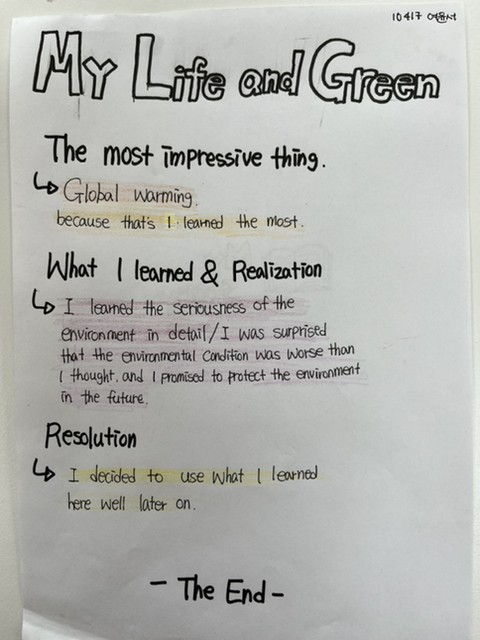 10417 여윤서
My Life and Green
The most impressive thing.
↳ Global warming.
because that's I learned the most.
What I learned & Realization
↳ I learned the seriousness of the
environment in detail/I was surprised
that the environmental condition was worse than
I thought. and I promised to protect the environment
in the future.
Resolution
↳ I decided to use what I learned
here well later on.
- The End -